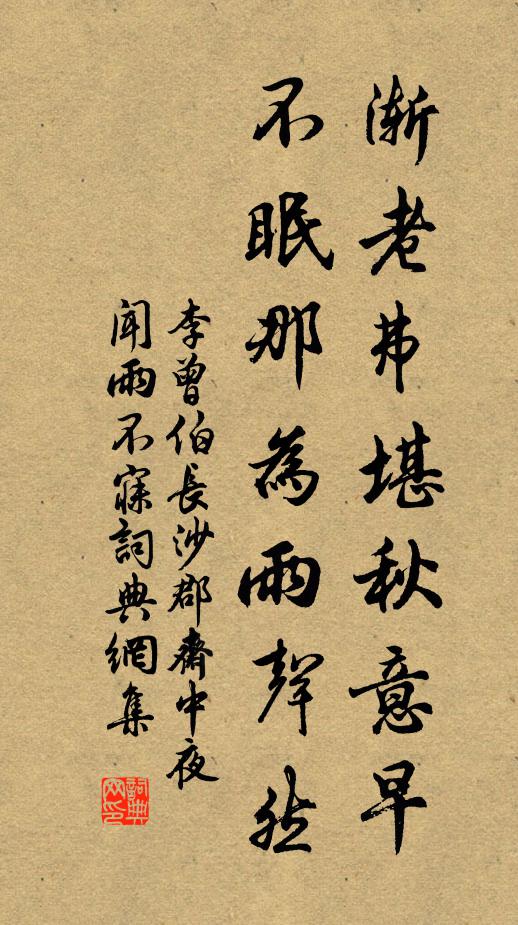 漸老弗堪秋意早
不眠那為雨聲然
李曾伯長沙郡齋中夜
聞雨不寐詞典網集
詞典
网印